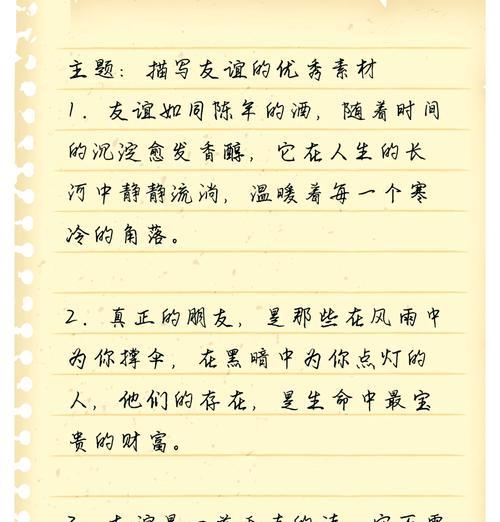 主题：描写友谊的优秀素材
1．友谊如同陈年的酒，随着时间
的沉淀愈发香醇，它在人生的长
河中静静流淌，温暖着每一个寒
冷的角落。
2．真正的朋友，是那些在风雨中
为你撑伞，在黑暗中为你点灯的
人，他们的存在，是生命中最宝
贵的财富。